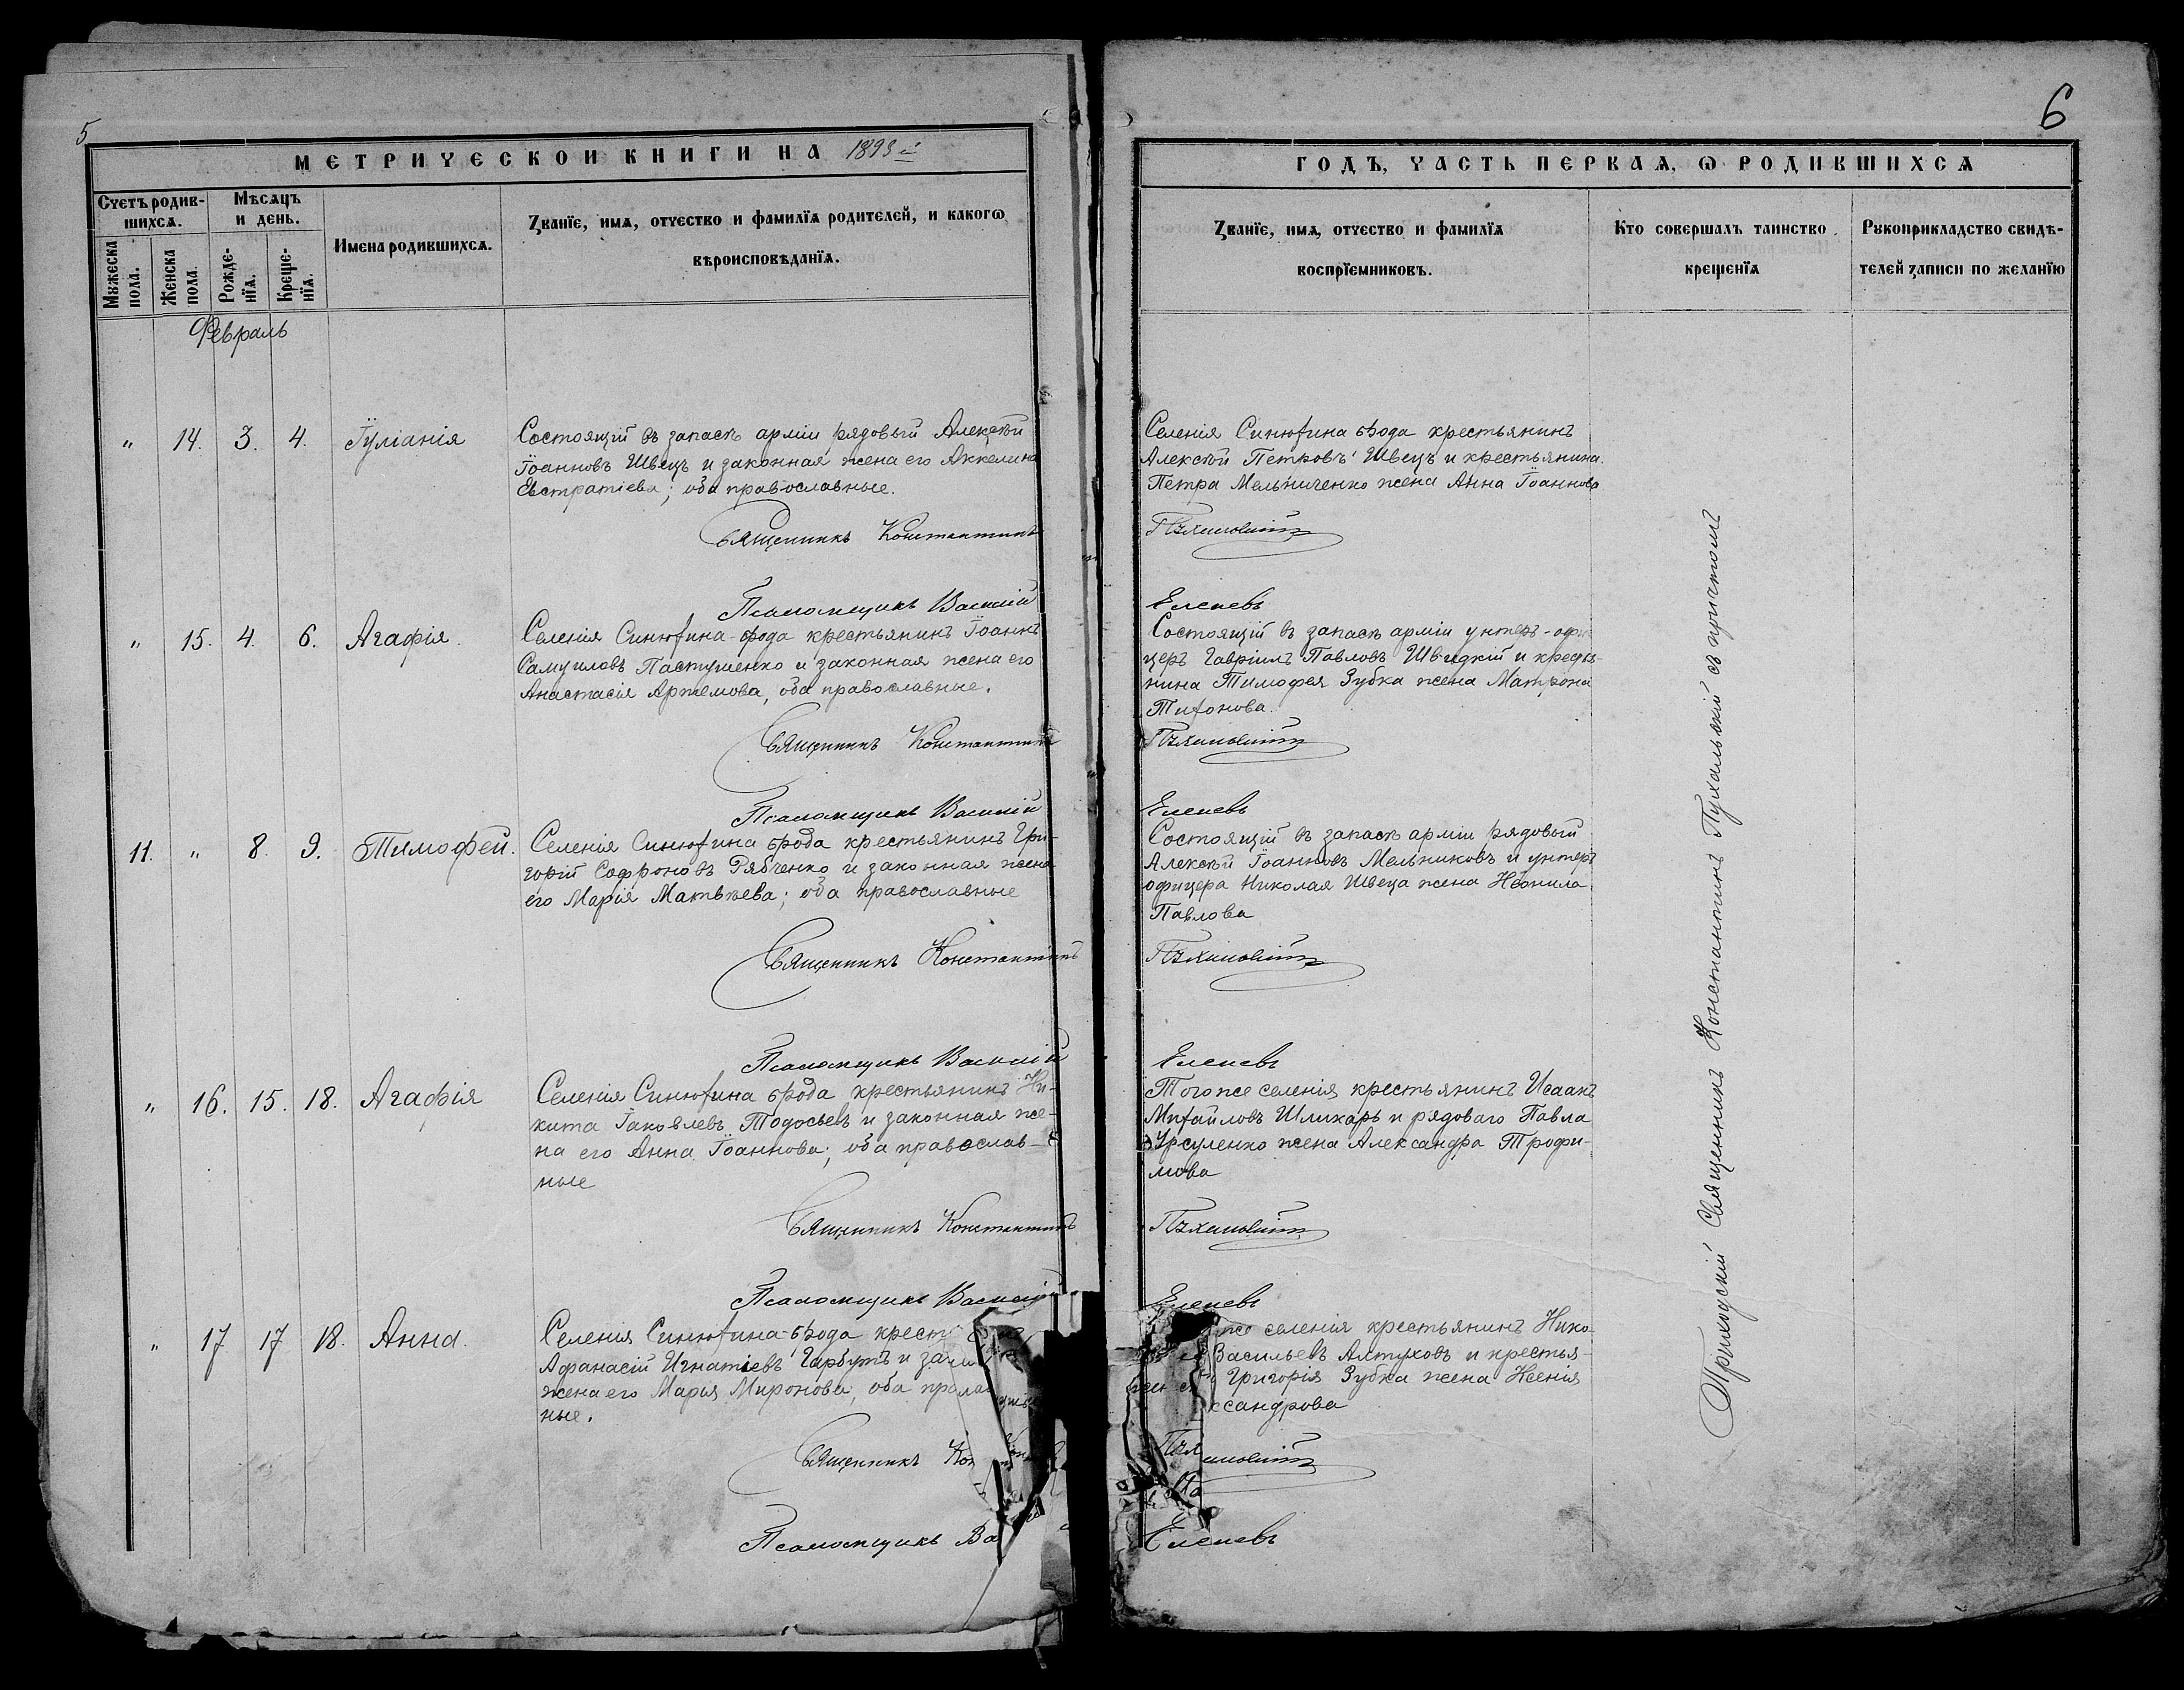 5
МЕТРИЧЕСКОЙ КНИГИ НА 1893 й
Счетъ родив-
шихся.
Мѣсяцъ
и день.
Мужеска
пола.
Женска
пола.
Рожде-
нїя.
Креще-
нїя.
Имена родившихся.
Званїе, имя, отчество и фамилїя родителей, и какогѡ
вѣроисповѣданїя.
Февраль
" 14. 3. 4. Іуліанія
Состоящій въ запасѣ арміи рядовый Алексѣй
Іоанновъ Швецъ и законная жена его Аккелина
Евстратіева; оба православные.
Священникъ Константинъ
Псаломщикъ Василій
" 15. 4. 6. Агафія.
Селенія Синюхина-брода крестьянинъ Іоаннъ
Самуиловъ Пастушенко и законная жена его
Анастасія Артемова, оба православные.
Священникъ Константинъ
Псаломщикъ Василій
11. " 8. 9. Тимофей.
Селенія Синюхина брода крестьянинъ Гри-
горій Софроновъ Рябченко и законная жена
его Марія Матвѣева; оба православные
Священникъ Константинъ
Псаломщикъ Василій
" 16. 15. 18. Агафія
Селенія Синюхина брода крестьянинъ Ни-
кита Іаковлевъ Тодосьевъ и законная же-
на его Анна Іоаннова; оба православ-
ные
Священникъ Константинъ
Псаломщикъ Василій
" 17 17 18. Анна.
Селенія Синюхина-брода крест
Афанасій Игнатіевъ Гарбузъ и за
жена его Марія Миронова, оба
ные.
Священникъ Кон
Псаломщикъ Ва
6
ГОДЪ, ЧАСТЬ ПЕРВАЯ, Ѡ РОДИВШИХСЯ
Званїе, имя, отчество и фамилїя
воспрїемниковъ.
Кто совершалъ таинство
крещенїя
Рукоприкладство свидѣ-
телей записи по желанїю
Селенія Синюхина брода крестьянинъ
Алексѣй Петровъ Швецъ и крестьянина
Петра Мельниченко жена Анна Іоаннова
Пухальскій
Еленевъ
Состоящій въ запасѣ арміи унтеръ-офи
церъ Гавріилъ Павловъ Швидкій и кресть-
нина Тимофея Зубка жена Матрона
Тихонова.
Пухальскій
Еленевъ
Состоящій въ запасѣ арміи рядовый
Алексѣй Іоанновъ Мельниковъ и унтеръ
офицера Николая Швеца жена Неонила
Павлова
Пухальскій
Еленевъ
Того же селенія крестьянинъ Исаакъ
Михайловъ Шлихарь и рядоваго Павла
Урсуленко жена Александра Трофи-
мова
Пухальскій
Еленевъ
же селенія крестьянинъ Нико-
Васильевъ Алтуховъ и крестья-
Григорія Зубка жена Ксенія
ксандрова
Пухальскій
Еленевъ
Приходскій Священникъ Константинъ Пухальскій съ причтомъ